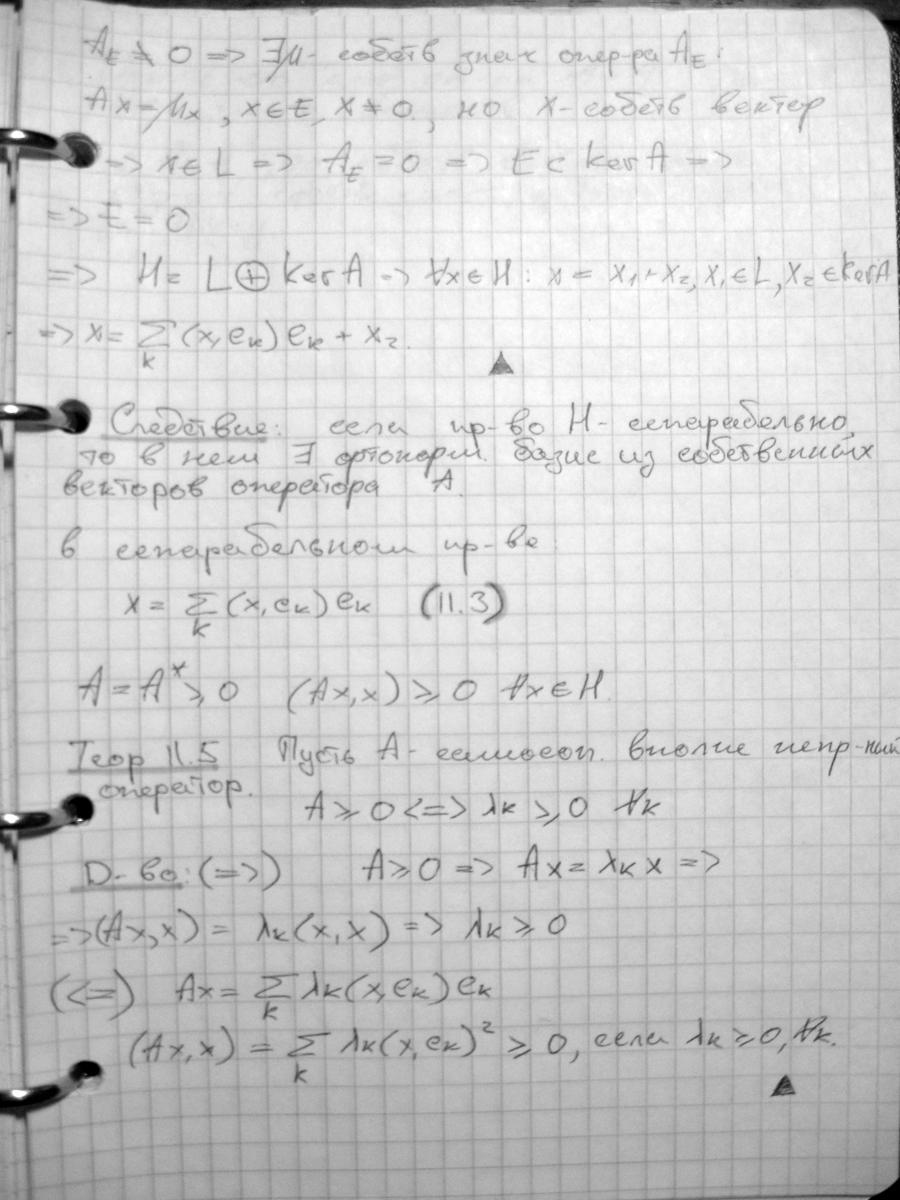 A_E ≠ 0 => ∃μ - собств знач опер-ра A_E:
Ax = μx, x∈E, x ≠ 0, но x - собств вектор
=> x∈L => A_E = 0 => E ⊂ ker A =>
=> E = 0
=> H = L ⊕ ker A => ∀x∈H: x = x₁ + x₂, x₁∈L, x₂∈ker A
=> x = Σ_k (x, e_k) e_k + x₂. ▲
Следствие: если пр-во H - сепарабельно,
то в нем ∃ ортонорм. базис из собственных
векторов оператора A.
в сепарабельном пр-ве:
x = Σ_k (x, e_k) e_k (11.3)
A = A* ≥ 0 (Ax, x) ≥ 0 ∀x∈H.
Теор 11.5 Пусть A - самосоп. вполне непр-ный
оператор.
A ≥ 0 <=> λ_k ≥ 0 ∀k
D-во: (=>) A ≥ 0 => Ax = λ_k x =>
=> (Ax, x) = λ_k (x, x) => λ_k ≥ 0
(<=) Ax = Σ_k λ_k (x, e_k) e_k
(Ax, x) = Σ_k λ_k (x, e_k)² ≥ 0, если λ_k ≥ 0, ∀k.
▲